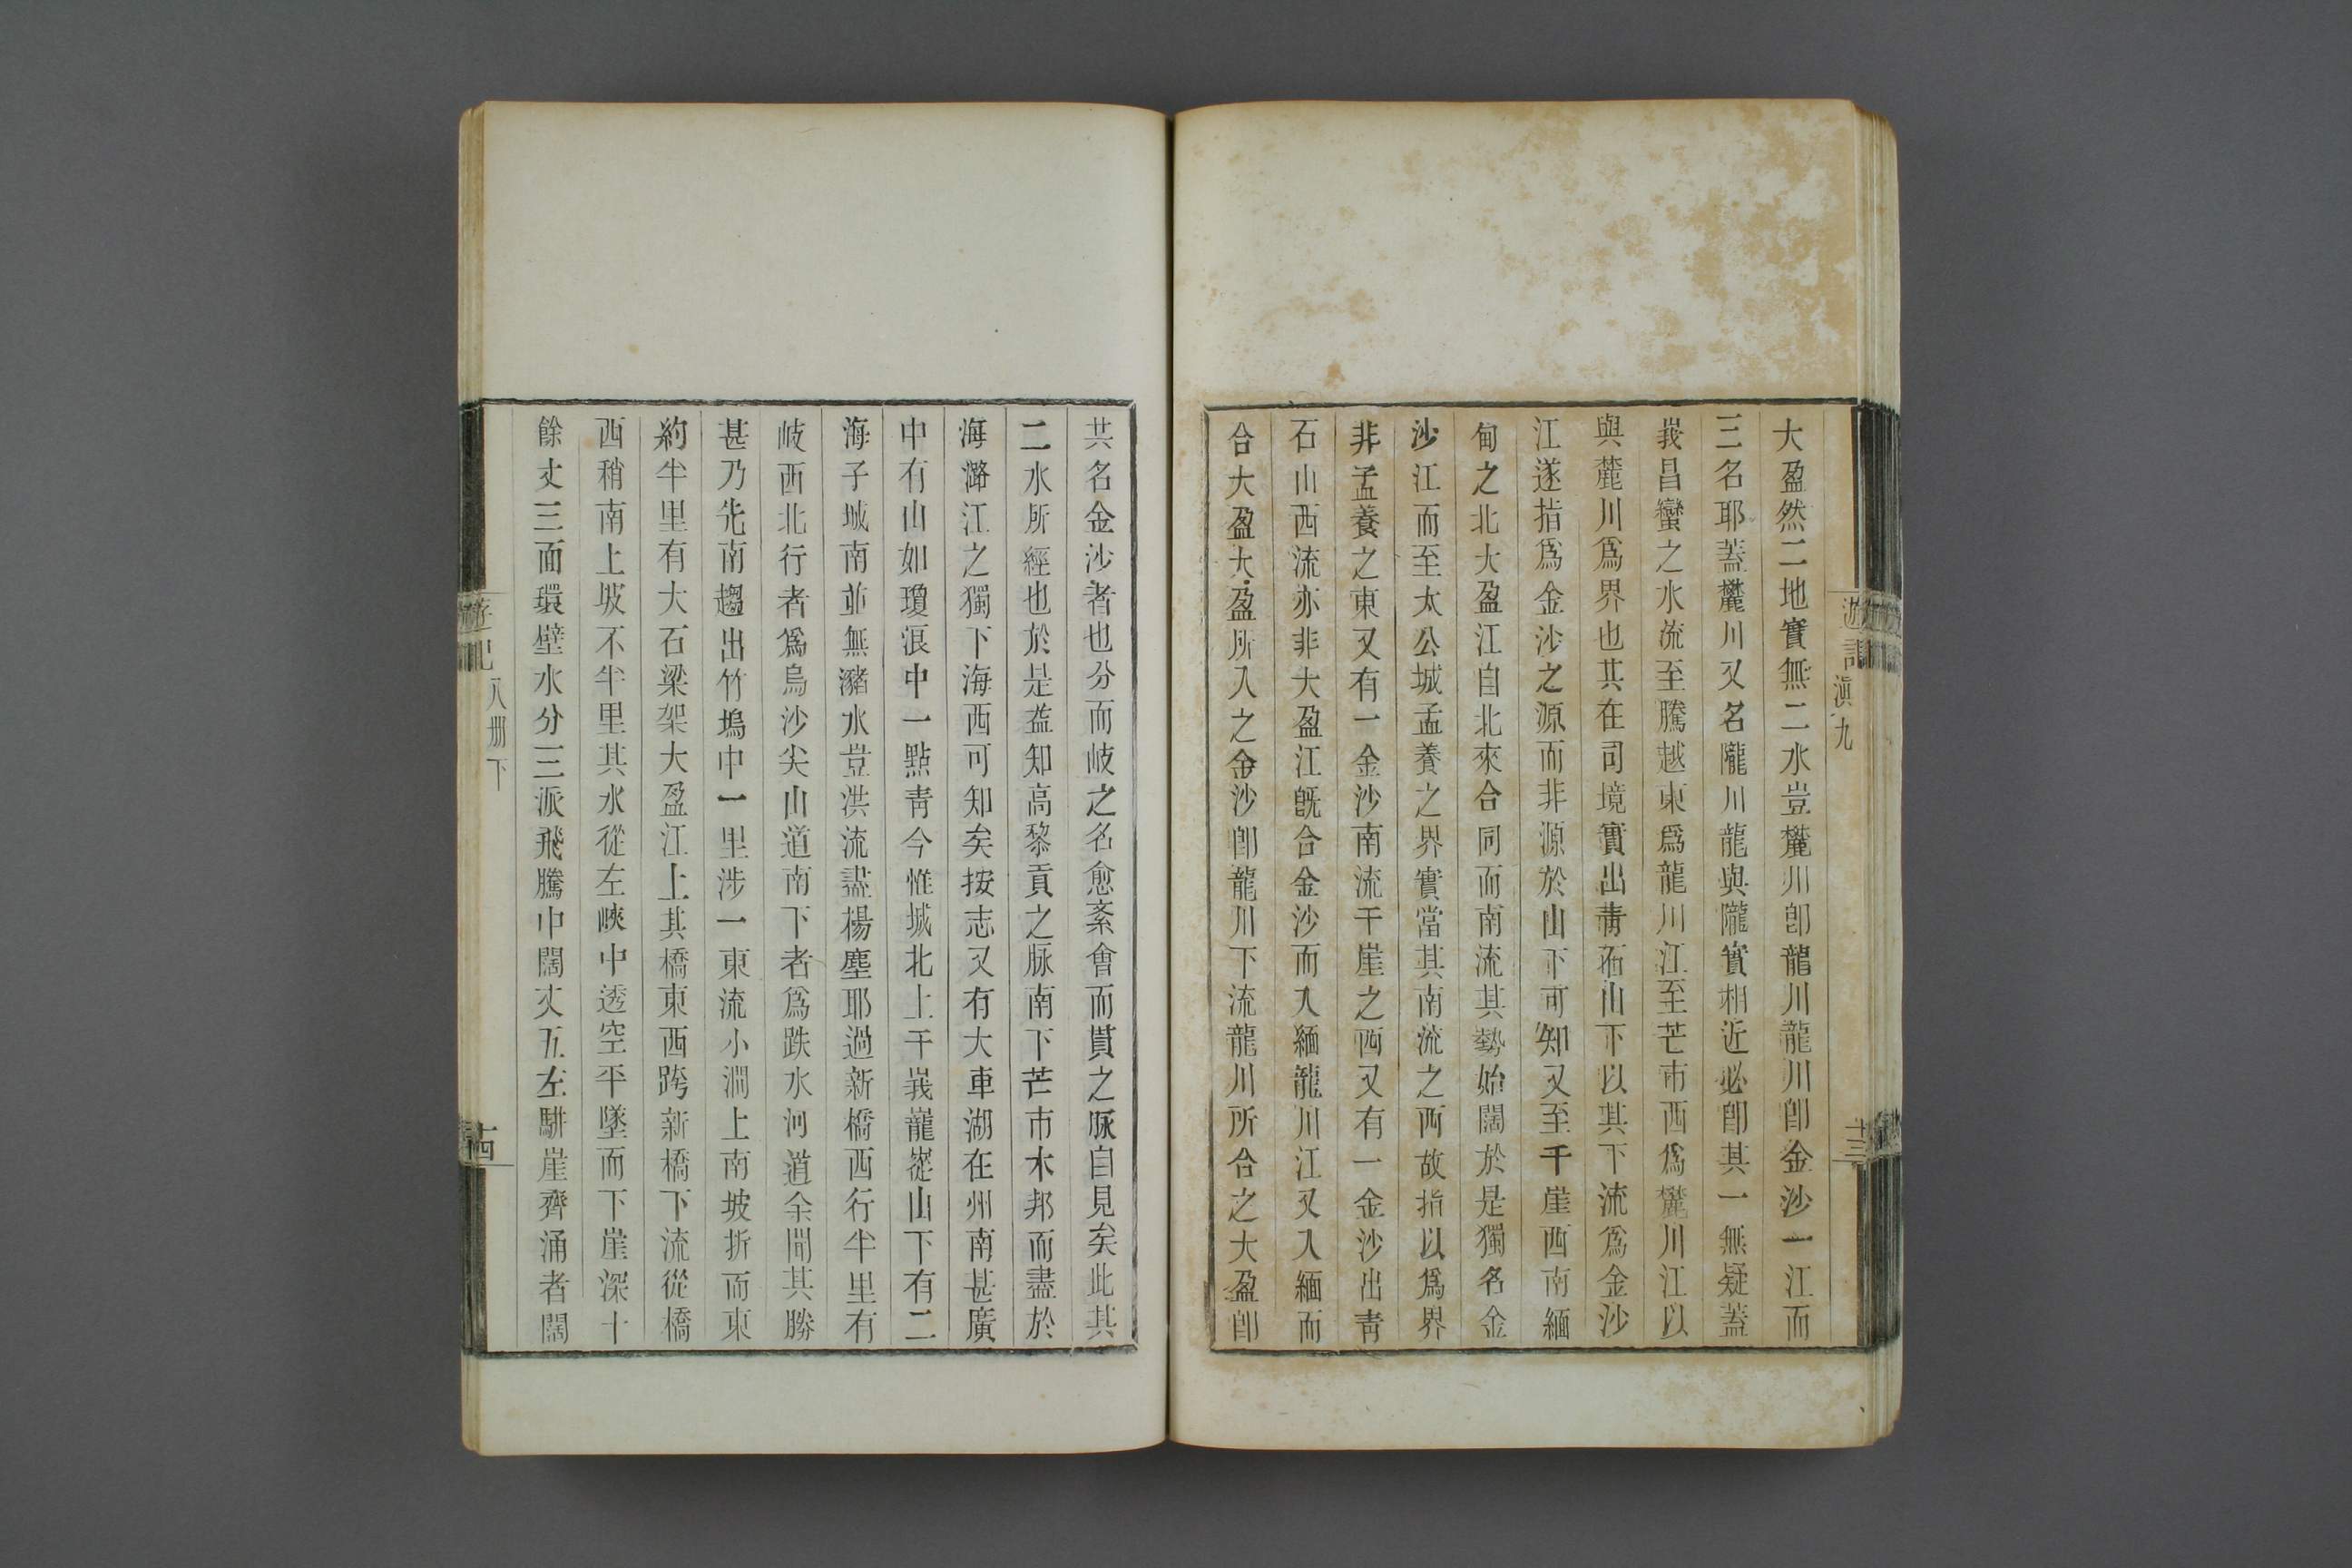 遊記
滇九
十三
大盈然二地實無二水豈麓川卽龍川龍川卽金沙一江而
三名耶蓋麓川又名隴川龍與隴實相近必卽其一無疑蓋
峩昌蠻之水流至騰越東爲龍川江至芒市西爲麓川江以
與麓川爲界也其在司境實出靑石山下以其下流爲金沙
江遂指爲金沙之源而非源於山下可知又至干崖西南緬
甸之北大盈江自北來合同而南流其勢始闊於是獨名金
沙江而至太公城孟養之界實當其南流之西故指以爲界
非孟養之東又有一金沙南流干崖之西又有一金沙出靑
石山西流亦非大盈江旣合金沙而入緬龍川江又入緬而
合大盈大盈所入之金沙卽龍川下流龍川所合之大盈卽
共名金沙者也分而岐之名愈紊會而貫之脉自見矣此其
二水所經也於是益知高黎貢之脉南下芒市木邦而盡於
海潞江之獨下海西可知矣按志又有大車湖在州南甚廣
中有山如瓊浪中一點靑今惟城北上干峩巃嵸山下有二
海子城南並無瀦水豈洪流盡楊塵耶過新橋西行半里有
岐西北行者爲烏沙尖山道南下者爲跌水河道余聞其勝
甚乃先南趨出竹塢中一里涉一東流小澗上南坡折而東
約半里有大石梁架大盈江上其橋東西跨新橋下流從橋
西稍南上坡不半里其水從左峽中透空平墜而下崖深十
餘丈三面環壁水分三派飛騰中闊丈五左騈崖齊涌者闊
遊記
八册下
十四